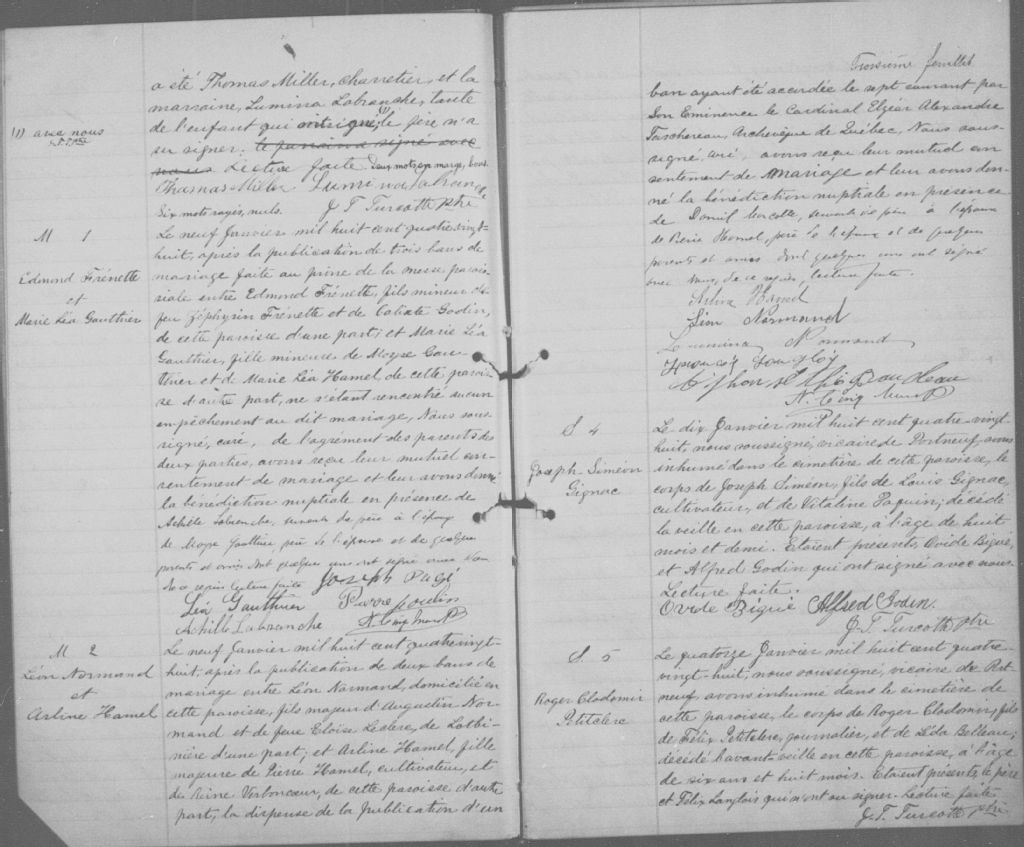 a été Thomas Miller, charretier, et la
marraine, Lumina Labranche, tante
de l'enfant qui ont signé, (1) le père n'a
(1) avec nous
su signer. le parrain a signé avec
nous Lecture faite. Deux mots en marge, bons.
Thomas Miller Lumina Labranche
Six mots rayés, nuls. J. T. Turcotte Ptre
M 1
Edmond Frénette
et
Marie Léa Gauthier
Le neuf Janvier mil huit cent quatre vingt-
huit, après la publication de trois bans de
mariage faite au prône de la messe parois-
siale entre Edmond Frénette, fils mineur de
feu Zéphyrin Frénette et de Calixte Godin,
de cette paroisse d'une part; et Marie Léa
Gauthier, fille mineure de Moyse Gau-
thier et de Marie Léa Hamel de cette parois-
se d'autre part, ne s'étant rencontré aucun
empêchement au dit mariage, Nous sous-
signé, curé, de l'agrément des parents des
deux parties, avons reçu leur mutuel con-
sentement de mariage et leur avons donné
la bénédiction nuptiale en présence de
Achille Labranche, servant de père à l'époux
de Moyse Gauthier, père de l'épouse et de quelques
parents et amis dont quelques uns ont signé avec nous
Lecture faite Joseph Pagé
Léa Gauthier Pierre Godin
Achille Labranche
M 2
Léon Normand
et
Arline Hamel
Le neuf Janvier mil huit cent quatre vingt-
huit, après la publication de deux bans de
mariage entre Léon Normand, domicilié en
cette paroisse, fils majeur d'Augustin Nor-
mand et de feue Eloïse Leclerc, de Lotbi-
nière d'une part; et Arline Hamel, fille
majeure de Pierre Hamel, cultivateur, et
de Reine Vertoncœur, de cette paroisse d'autre
part; la dispense de la publication d'un
Troisième feuillet
ban ayant été accordée le sept courant par
Son Eminence le Cardinal Elzéar Alexandre
Taschereau, Archevêque de Québec, Nous sous-
signé, curé, avons reçu leur mutuel con-
sentement de mariage et leur avons don-
né la bénédiction nuptiale en présence
de Marcotte, servant de père à l'époux
de Hamel, père de l'épouse et de quelques
parents et amis dont quelques uns ont signé
avec nous, lecture faite.
Hamel
Léon Normand
Normand
S 4
Joseph-Siméon
Gignac
Le dix Janvier mil huit cent quatre-vingt-
huit, nous soussigné, vicaire de Portneuf, avons
inhumé dans le cimetière de cette paroisse, le
corps de Joseph Siméon, fils de Louis Gignac,
cultivateur, et de Vitaline Paquin; décédé
la veille en cette paroisse, à l'âge de huit
mois et demi. Etaient présents, Ovide Bigué,
et Alfred Godin qui ont signé avec nous.
Lecture faite.
Ovide Bigué Alfred Godin.
J. T. Turcotte Ptre
S. 5
Roger Clodomir
Petitclerc
Le quatorze Janvier mil huit cent quatre-
vingt-huit, nous soussigné, vicaire de Port-
neuf, avons inhumé dans le cimetière de
cette paroisse, le corps de Roger Clodomir, fils
de Félix Petitclerc, journalier, et de Léda Belleau;
décédé l'avant-veille en cette paroisse, à l'âge
de six ans et huit mois. Etaient présents, le père
et Félix Langlois qui n'ont su signer. Lecture faite
J. T. Turcotte Ptre